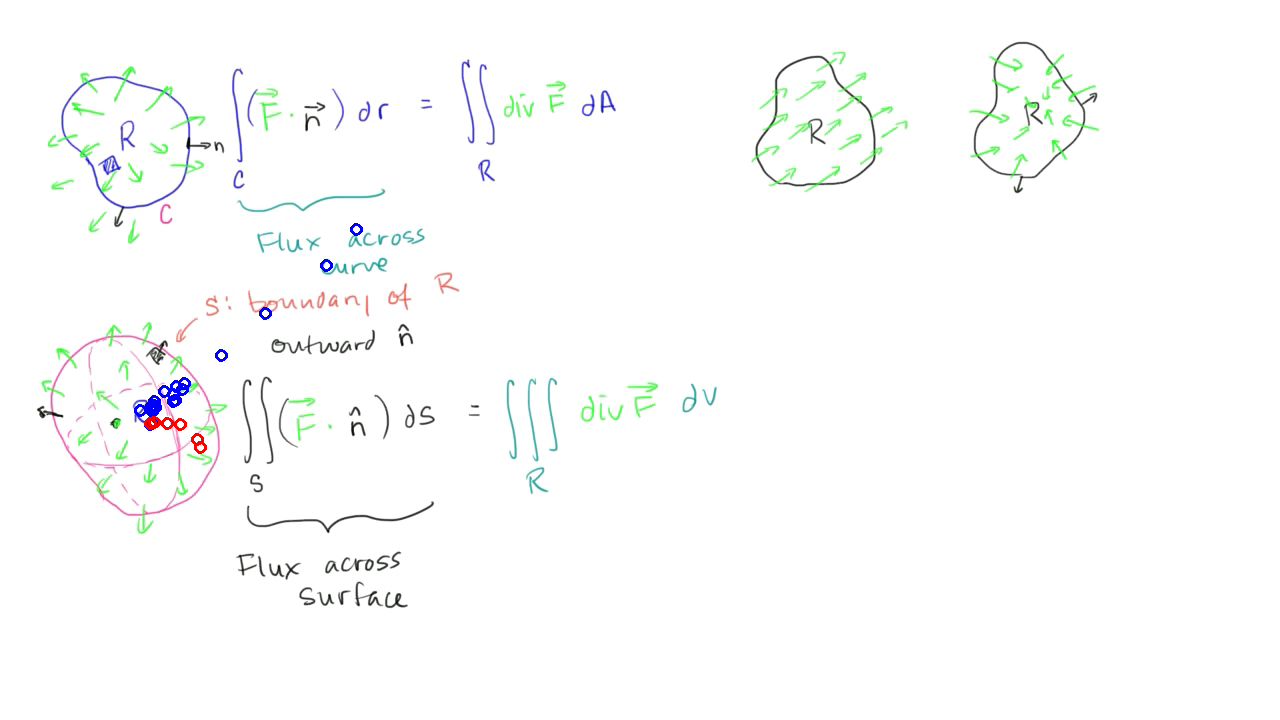 R
n
C
∫ (F⃗ · n⃗) dr = ∬ div F⃗ dA
C R
Flux across
curve
S: boundary of R
outward n̂
∬ (F⃗ · n̂) dS = ∭ div F⃗ dV
S R
Flux across
surface
R
R